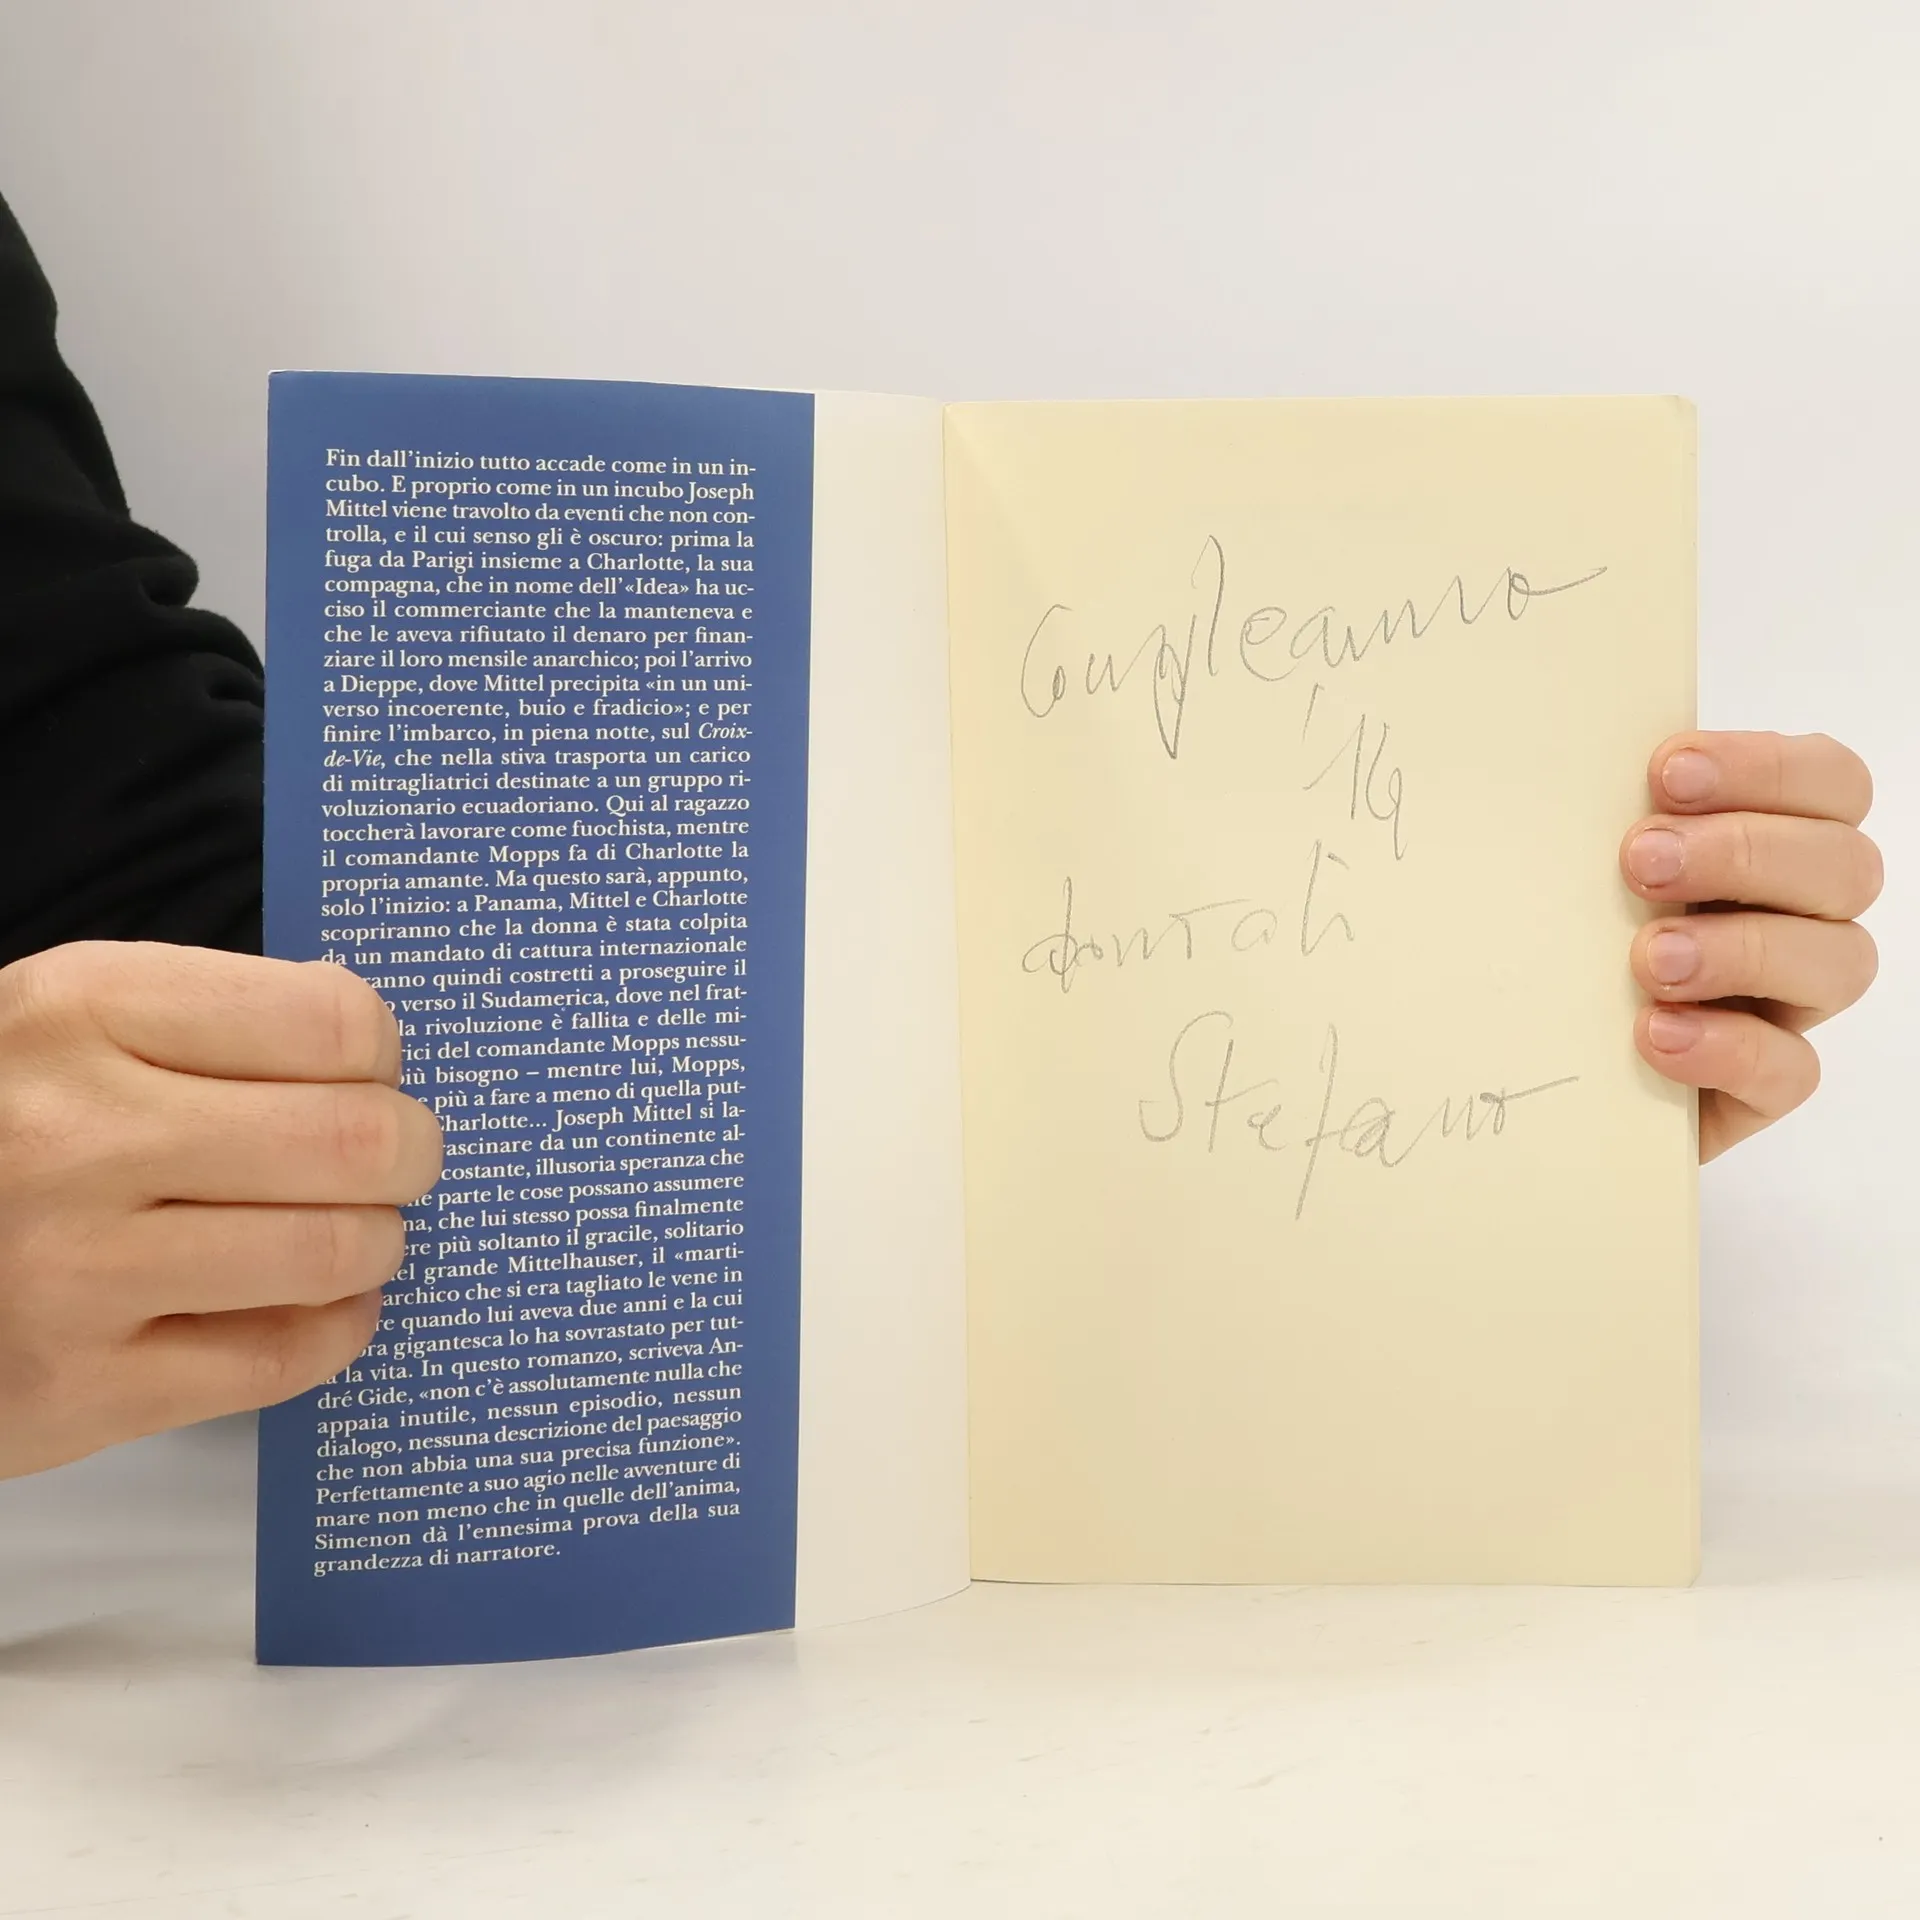 Fin dall'inizio tutto accade come in un in-
cubo. E proprio come in un incubo Joseph
Mittel viene travolto da eventi che non con-
trolla, e il cui senso gli è oscuro: prima la
fuga da Parigi insieme a Charlotte, la sua
compagna, che in nome dell'«Idea» ha uc-
ciso il commerciante che la manteneva e
che le aveva rifiutato il denaro per finan-
ziare il loro mensile anarchico; poi l'arrivo
a Dieppe, dove Mittel precipita «in un uni-
verso incoerente, buio e fradicio»; e per
finire l'imbarco, in piena notte, sul Croix-
de-Vie, che nella stiva trasporta un carico
di mitragliatrici destinate a un gruppo ri-
voluzionario ecuadoriano. Qui al ragazzo
toccherà lavorare come fuochista, mentre
il comandante Mopps fa di Charlotte la
propria amante. Ma questo sarà, appunto,
solo l'inizio: a Panama, Mittel e Charlotte
scopriranno che la donna è stata colpita
da un mandato di cattura internazionale
ranno quindi costretti a proseguire il
verso il Sudamerica, dove nel frat-
la rivoluzione è fallita e delle mi-
rici del comandante Mopps nessu-
più bisogno – mentre lui, Mopps,
più a fare a meno di quella put-
Charlotte... Joseph Mittel si la-
rascinare da un continente al-
costante, illusoria speranza che
parte le cose possano assumere
na, che lui stesso possa finalmente
ere più soltanto il gracile, solitario
el grande Mittelhauser, il «marti-
archico che si era tagliato le vene in
re quando lui aveva due anni e la cui
ra gigantesca lo ha sovrastato per tut-
la vita. In questo romanzo, scriveva An-
dré Gide, «non c'è assolutamente nulla che
appaia inutile, nessun episodio, nessun
dialogo, nessuna descrizione del paesaggio
che non abbia una sua precisa funzione».
Perfettamente a suo agio nelle avventure di
mare non meno che in quelle dell'anima,
Simenon dà l'ennesima prova della sua
grandezza di narratore.
Compleanno
'14
Stefano